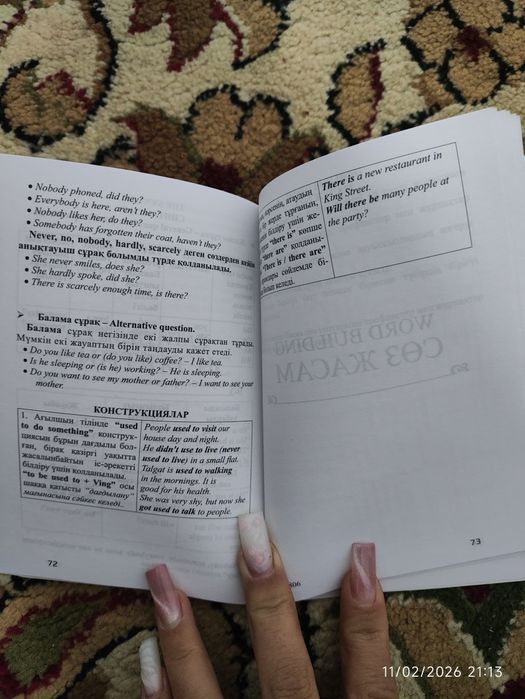 • Nobody phoned, did they?
• Everybody is here, aren't they?
• Nobody likes her, do they?
• Somebody has forgotten their coat, haven't they?
Never, no, nobody, hardly, scarcely деген сөздерден кейін
анықтауыш сұрақ болымды түрде қолданылады.
• She never smiles, does she?
• She hardly spoke, did she?
• There is scarcely enough time, is there?
➤ Балама сұрақ – Alternative question.
Балама сұрақ негізінде екі жалпы сұрақтан тұрады.
Мүмкін екі жауаптың бірін таңдауды кажет етеді.
• Do you like tea or (do you like) coffee? – I like tea.
• Is he sleeping or (is he) working? – He is sleeping.
• Do you want to see my mother or father? – I want to see your
mother.
КОНСТРУКЦИЯЛАР
1. Ағылшын тілінде "used
to do something" конструк-
циясын бұрын дағдылы бол-
ған, бірақ қазіргі уақытта
жасалынбайтын іс-әрекетті
білдіру үшін қолданылады.
"to be used to + Ving" осы
шаққа қатысты "дағдылану"
мағынасына сәйкес келеді.
People used to visit our
house day and night.
He didn't use to live (never
used to live) in a small flat.
Talgat is used to walking
in the mornings. It is
good for his health.
She was very shy, but now she
got used to talk to people.
72
нәрсенің, атаудың
бір жерде тұрғанын,
білдіру үшін же-
"there is" көпше
"there are" қолданы-
"There is / there are"
сөйлемде бі-
болып келеді.
There is a new restaurant in
King Street.
Will there be many people at
the party?
WORD BUILDING
СӨЗ ЖАСАМ
73
806
11/02/2026 21:13